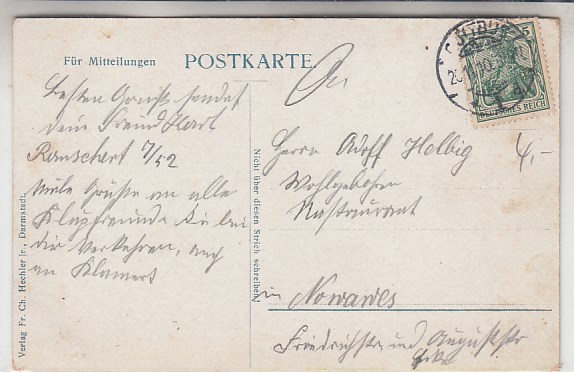 Für Mitteilungen
POSTKARTE.
Besten Gruß sendet
dein Freund Karl
Ranschart 7/52
Viele Grüße an alle
die bei
dir Verkehren, auch
an Klamert
An
Herrn Adolf Helbig
Wohlgeboren
Restaurant
in Nowawes
Friedrichstr und Auguststr
Ecke
4,-
5
DEUTSCHES REICH
Nicht über diesen Strich schreiben!
Verlag Fr. Ch. Hechler jr., Darmstadt.